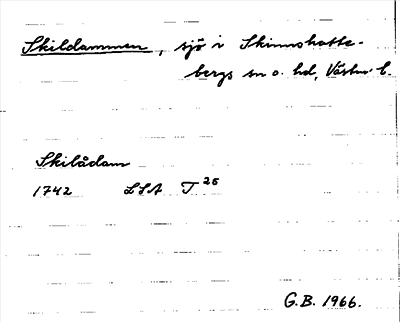 Skildammen, sjö i Skinnskatte-
bergs sn o. hd, Västm. l.
Skilådam
1742 LSA T 26
G.B. 1966.